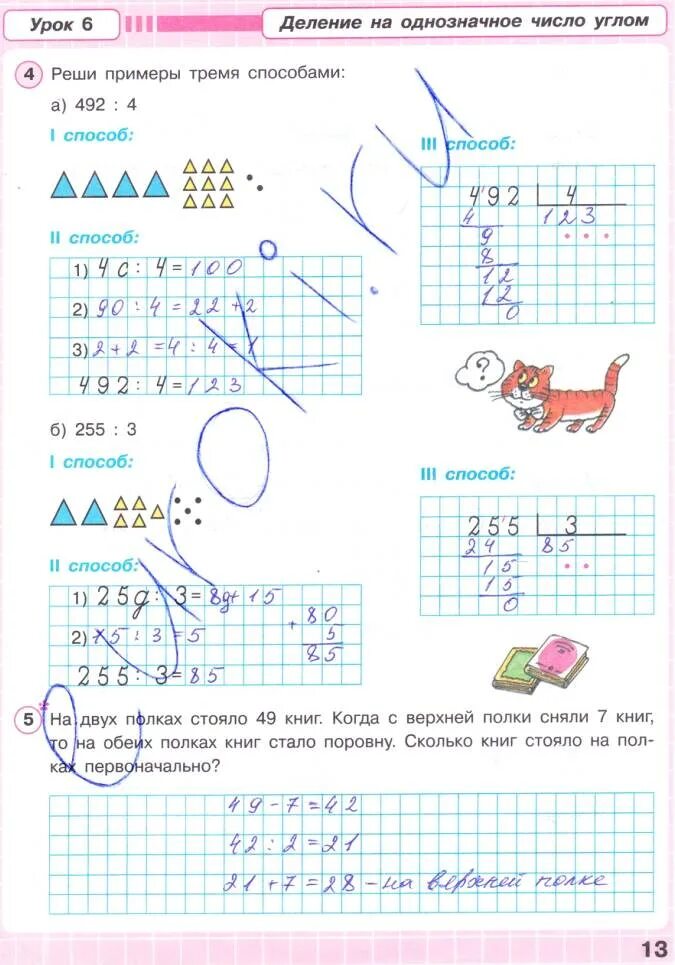 Урок 6
Деление на однозначное число углом
4 Реши примеры тремя способами:
а) 492 : 4
I способ:
II способ:
1) 4 с : 4 = 100
2) 90 : 4 = 22 + 2
3) 2 + 2 = 4 : 4 = 1
492 : 4 = 123
III способ:
492 4
4 123
9
8
12
12
0
?
б) 255 : 3
I способ:
II способ:
1) 25д : 3 = 8д + 15
2) 15 : 3 = 5
255 : 3 = 85
+ 80
5
85
III способ:
255 3
24 85
15
15
0
5* На двух полках стояло 49 книг. Когда с верхней полки сняли 7 книг,
то на обеих полках книг стало поровну. Сколько книг стояло на пол-
ках первоначально?
49 - 7 = 42
42 : 2 = 21
21 + 7 = 28 - на верхней полке
13